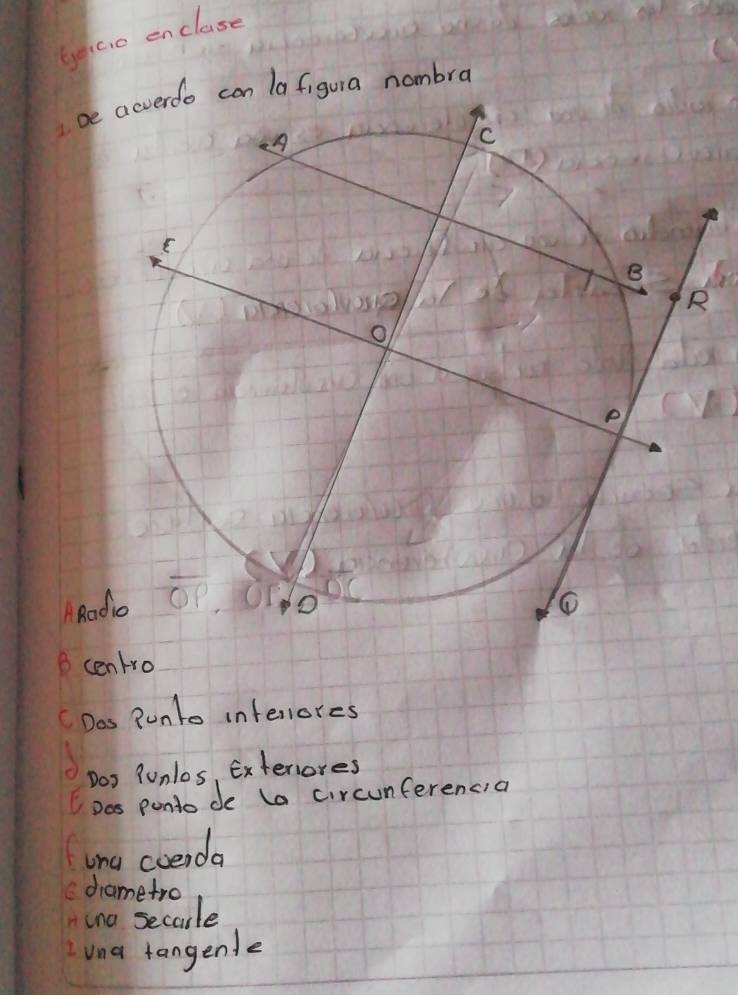 Ejercicio en clase
1. De acuerdo con la figura nombra
A
C
E
B
R
O
P
D
Q
A Radio OP, OC
B centro
C Dos Punto interiores
d Dos Puntos Exteriores
E Dos punto de la circunferencia
F una cuerda
G diametro
H una
I una tangente